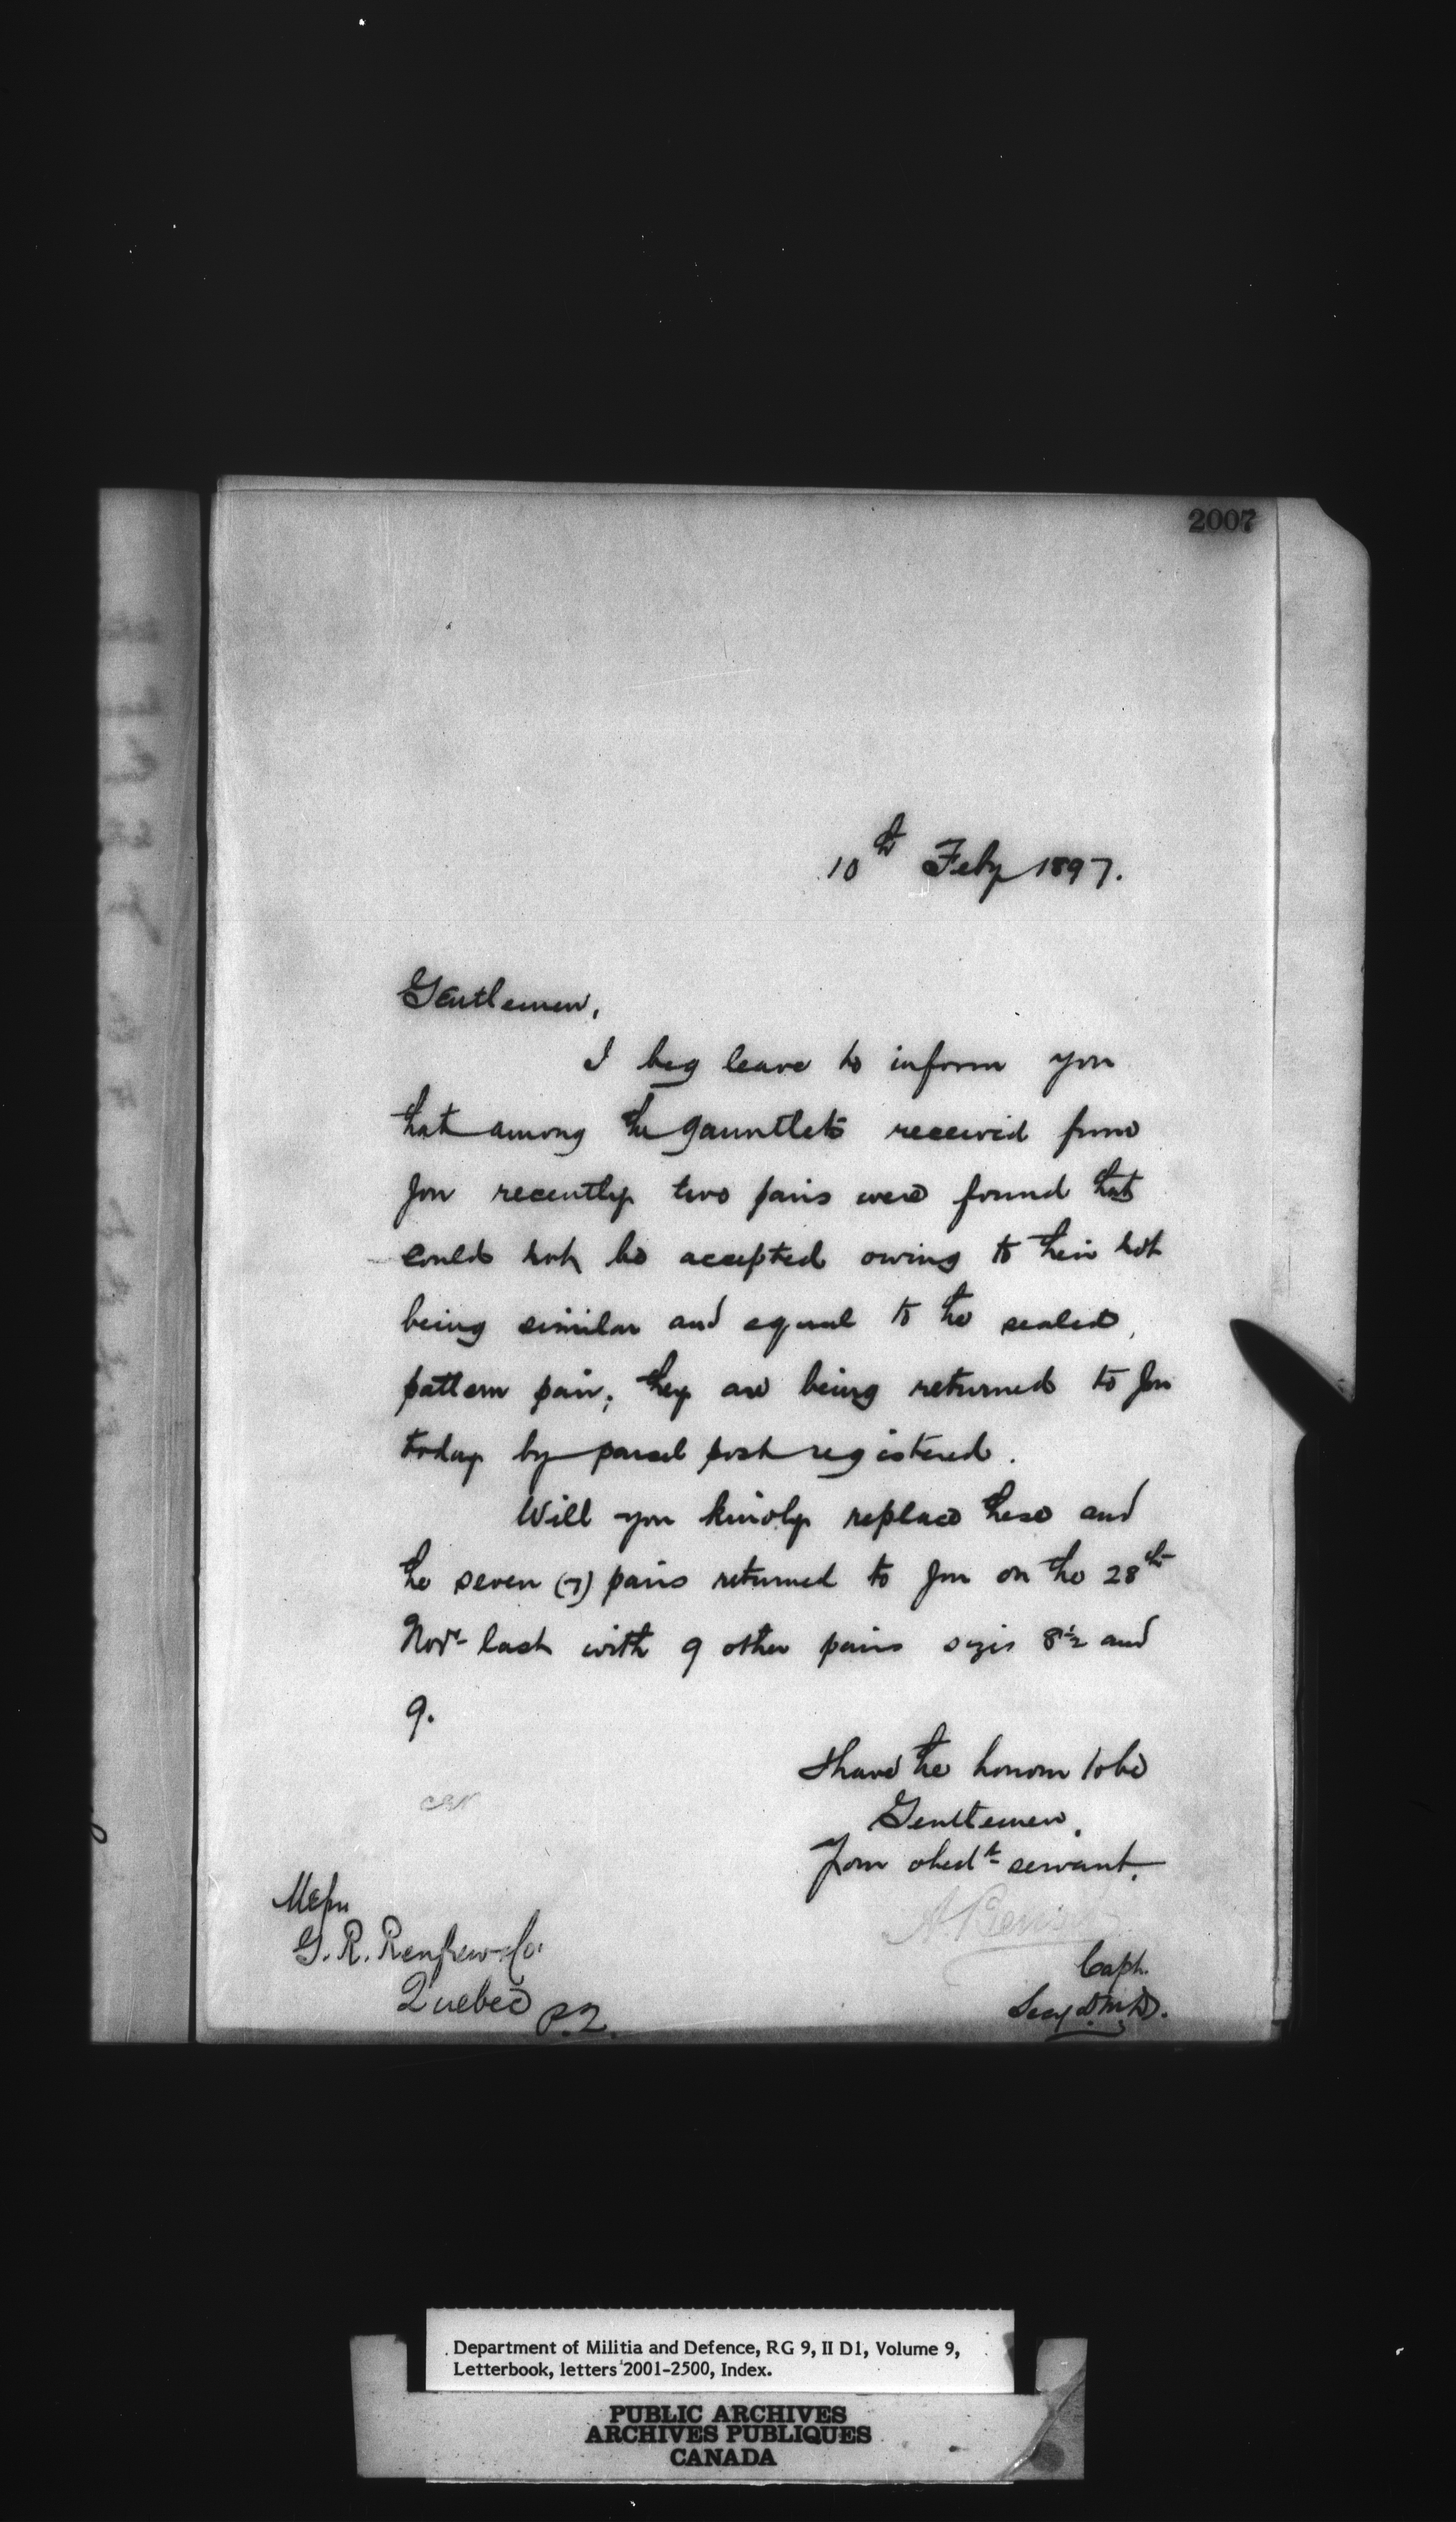 2007
10th Feby 1897.
Gentlemen,
I beg leave to inform you
that among the gauntlets received from
you recently two pairs were found that
could not be accepted owing to their not
being similar and equal to the sealed
pattern pair; they are being returned to you
today by parcel post registered.
Will you kindly replace these and
the seven (7) pairs returned to you on the 28th
Novr last with 9 other pairs sizes 8½ and
9.
I have the honour to be
Gentlemen,
Your obedt servant.
Messrs
G. R. Renfrew & Co.
Quebec
P.Q.
Capt.
Secy D.M.D.
Department of Militia and Defence, RG 9, II D1, Volume 9,
Letterbook, letters 2001-2500, Index.
PUBLIC ARCHIVES
ARCHIVES PUBLIQUES
CANADA